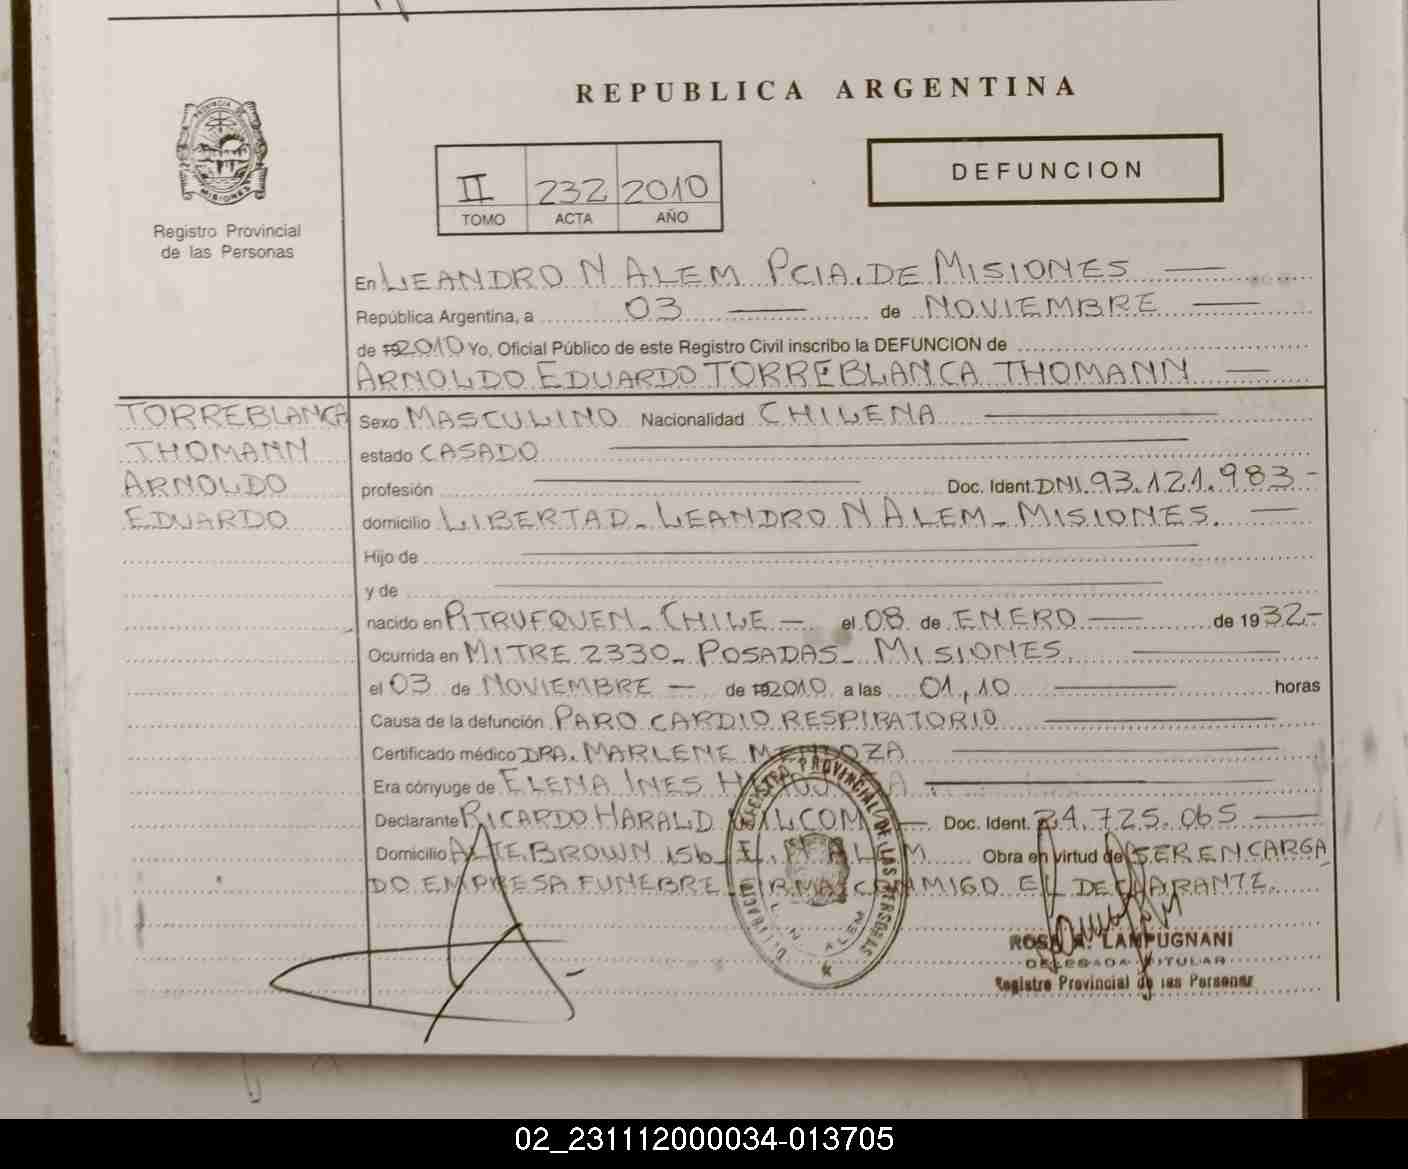 REPUBLICA ARGENTINA
PROVINCIA DE
MISIONES
Registro Provincial
de las Personas
II 232 2010
TOMO ACTA AÑO
DEFUNCION
En LEANDRO N ALEM PCIA. DE MISIONES
República Argentina, a 03 de NOVIEMBRE
de 2010 Yo, Oficial Público de este Registro Civil inscribo la DEFUNCION de
ARNOLDO EDUARDO TORREBLANCA THOMANN
TORREBLANCA
THOMANN
ARNOLDO
EDUARDO
Sexo MASCULINO Nacionalidad CHILENA
estado CASADO
profesión Doc. Ident. DNI. 93.121.983-
domicilio LIBERTAD - LEANDRO N ALEM - MISIONES.
Hijo de
y de
nacido en PITRUFQUEN - CHILE - el 08 de ENERO de 1932-
Ocurrida en MITRE 2330 - POSADAS - MISIONES
el 03 de NOVIEMBRE - de 2010 a las 01,10 horas
Causa de la defunción PARO CARDIO RESPIRATORIO
Certificado médico DRA. MARLENE MENDOZA
Era cónyuge de ELENA INES
Declarante RICARDO HARALD Doc. Ident. 24.725.065
Domicilio ALTE. BROWN 156 - L. N ALEM Obra en virtud de SER ENCARGA
DO EMPRESA FUNEBRE FIRMA CONMIGO EL DECLARANTE.
REGISTRO PROVINCIAL DE LAS PERSONAS
L. N. ALEM
ROSA A. LAMPUGNANI
DELEGADA TITULAR
Registro Provincial de las Personas
02_231112000034-013705